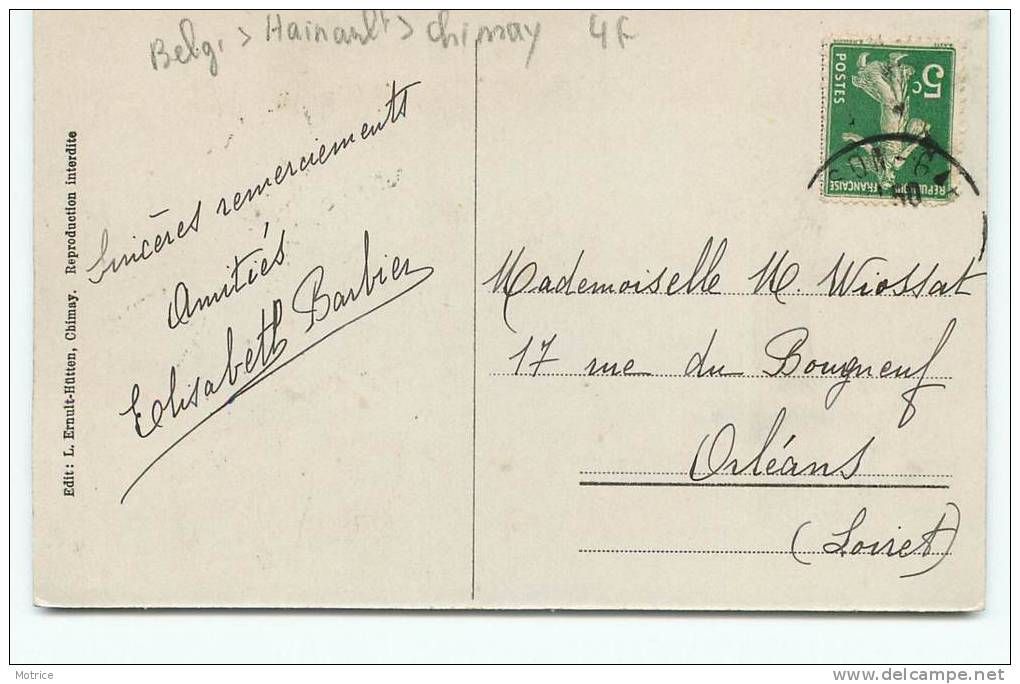 Belg. > Hainault > Chimay 4F
Edit: L. Ernult-Hütten, Chimay. Reproduction interdite
Sincères remerciements
Amitiés
Elisabeth Barbier
5c
POSTES
REPUBLIQUE FRANÇAISE
Mademoiselle M. Wiossat
17 rue du Bourgneuf
Orléans
(Loiret)
Motrice
delcampe.net